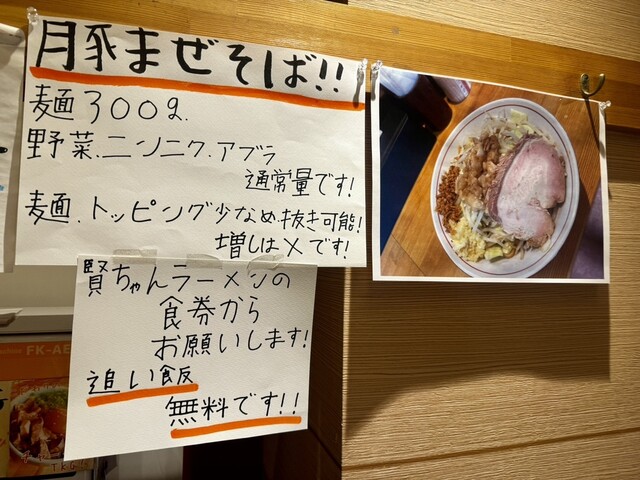 豚まぜそば!!
麺300g.
野菜.ニンニク.アブラ
通常量です!
麺.トッピング少なめ抜き可能!
増しは×です!
賢ちゃんラーメンの
食券から
お願いします!
追い飯
無料です!!
FK-AE
TKG